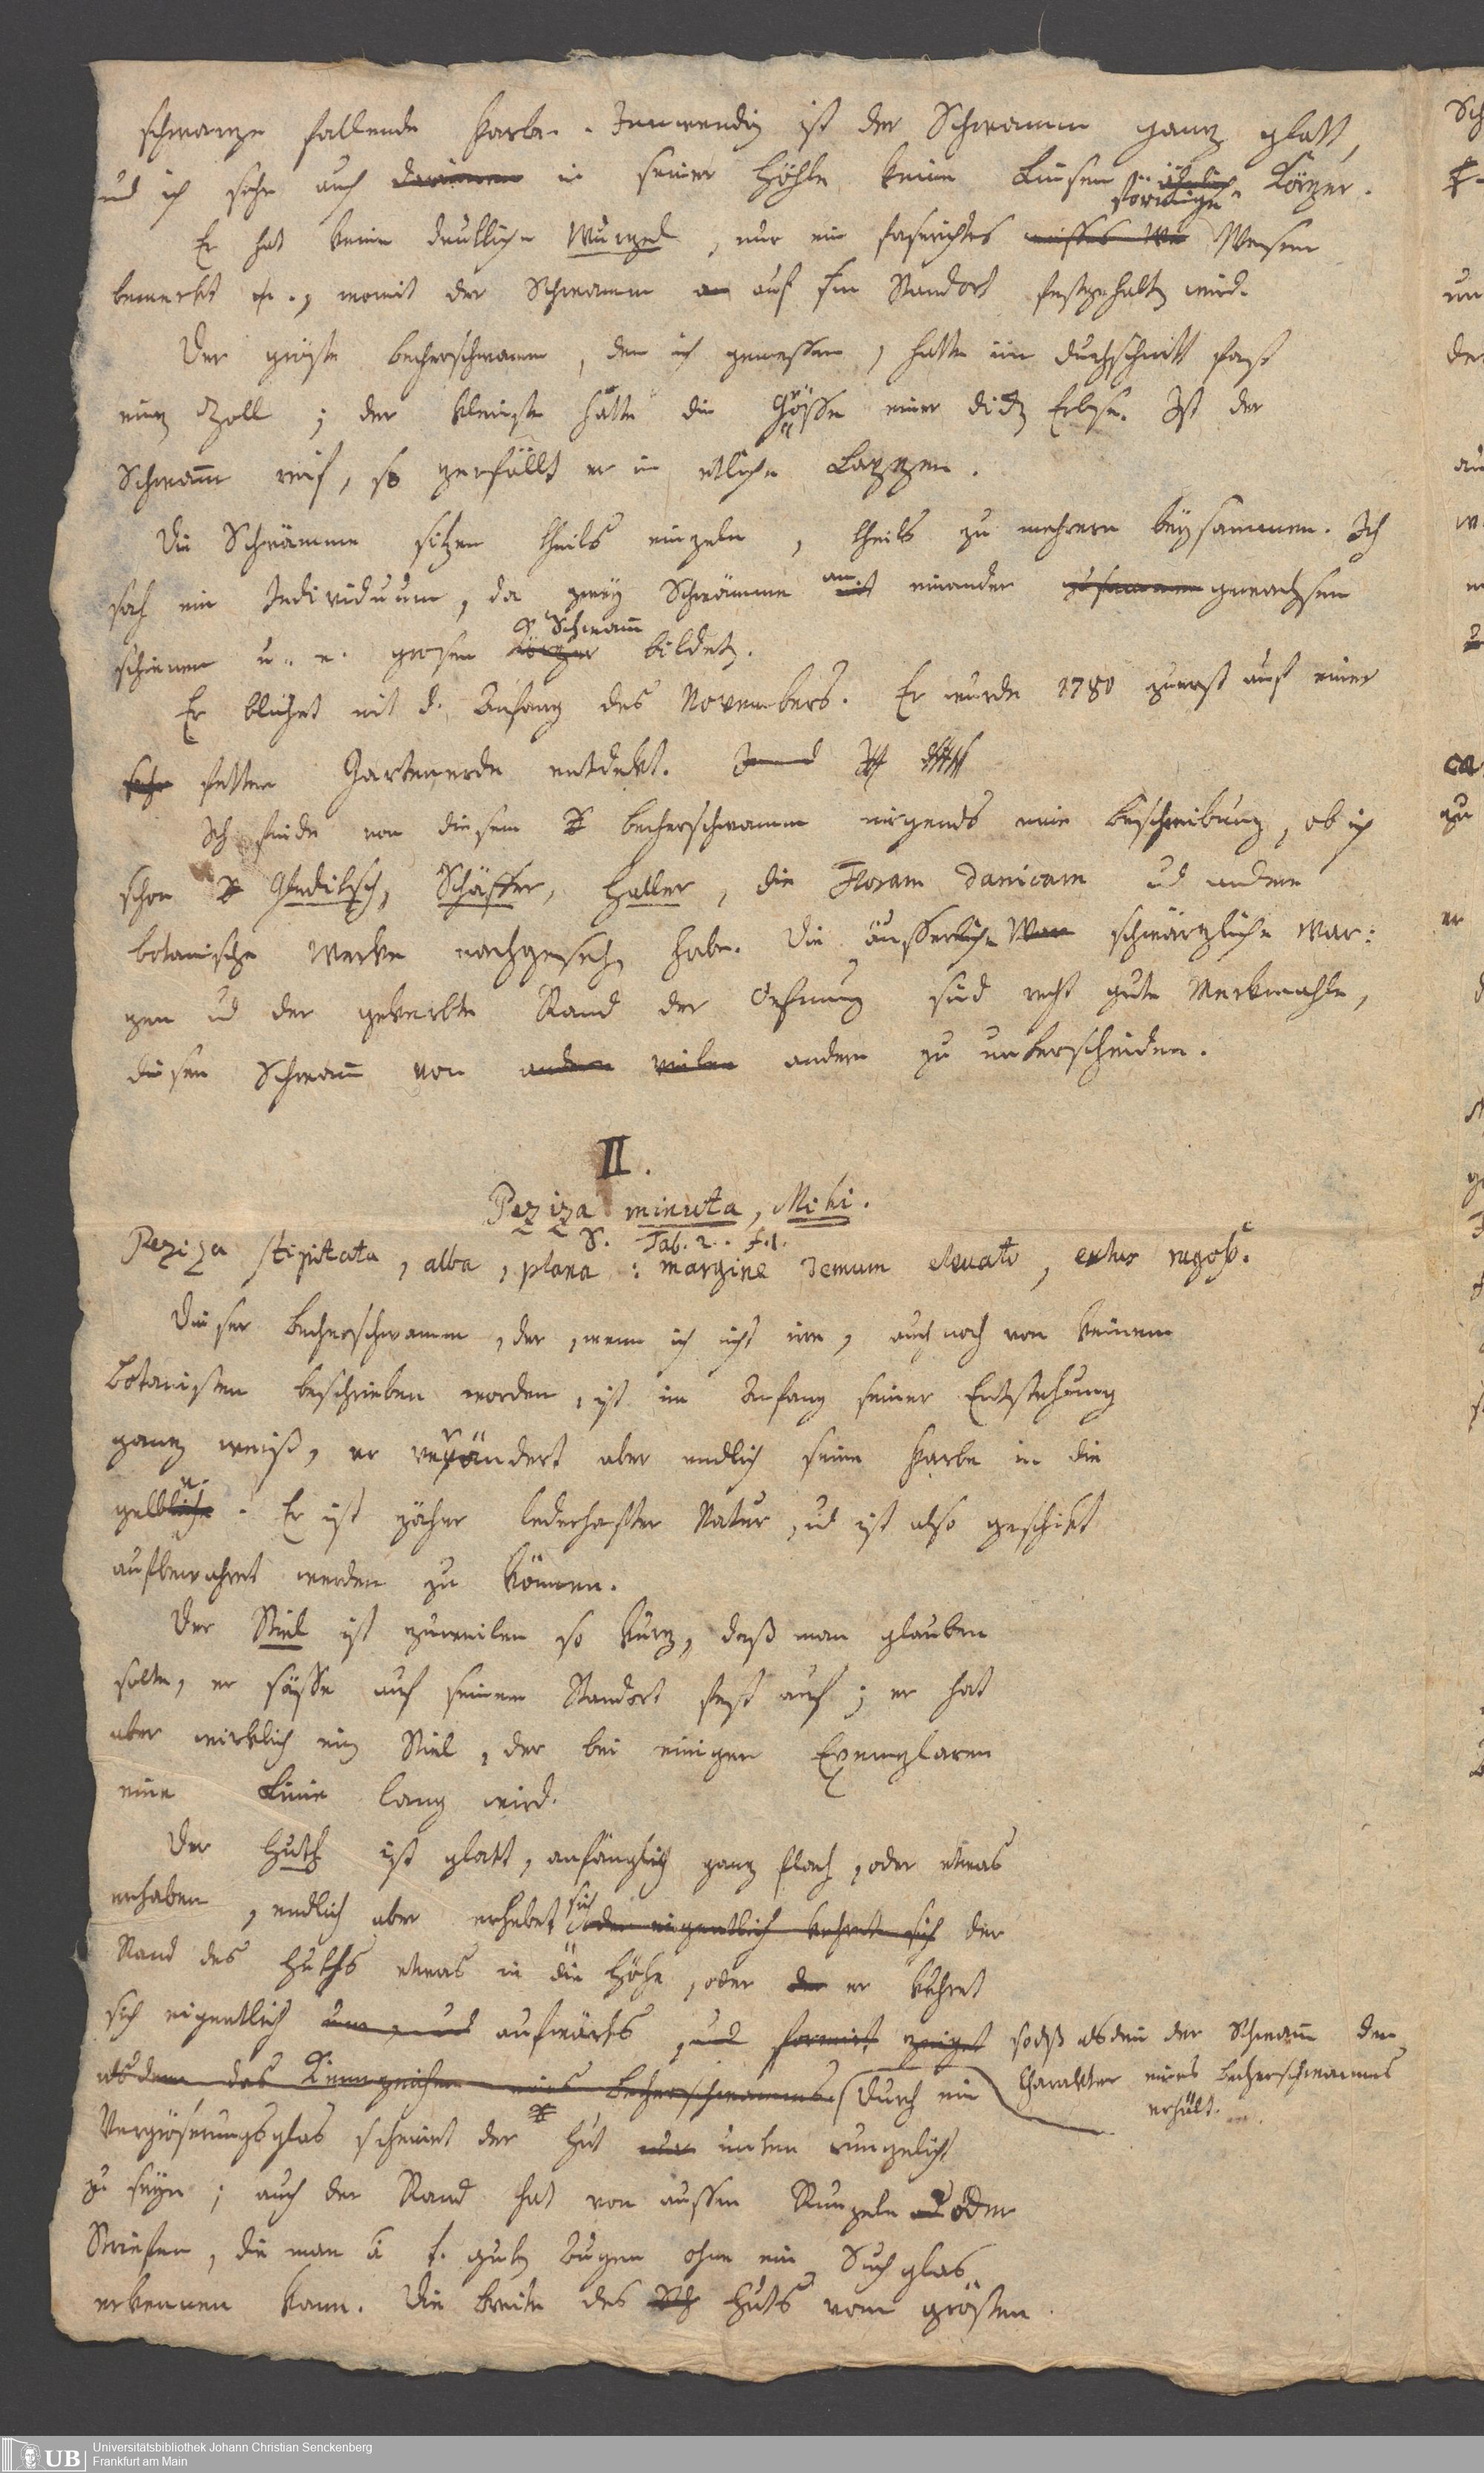 schwarze fallende Farbe. Inwendig ist der Schwamm ganz glatt,
und ich sehe auch darinnen in seiner Höhle keine Linsen ähnlich
förmige Körper.
Er hat keine deutliche Wurzel, nur ein faserichtes weisses We Wesen
bemerkt, womit der Schwamm an auf sein Standort festgehalten wird.
Der gröste Becherschwamm, den ich gemessen, hatte im Durchschnitt fast
einen Zoll; der kleinste hatte die Gröse einer dicken Erbse. Ist der
Schwam̄ reif, so zerfällt er in etliche Lappen.
Die Schwämme sitzen theils einzeln, theils zu mehrern beysammen. Ich
sah ein Individuum, da zwey Schwämme mit an einander zusammen gewachsen
schienen u. e. grosen Körper Schwam̄ bildeten.
Er blühet mit d. Anfang des Novembers. Er wurde 1780 zuerst auf einer
sehr fetten Gartenerde entdekt.
Ich finde von diesem Becherschwamm nirgends eine Beschreibung, ob ich
schon Gleditsch, Schäffer, Haller, die Floram Danicam und andere
botanische Werke nachgesehen habe. Die äusserliche War schwärzliche War:
zen und der gekerbte Rand der Oefnung sind recht gute Merkmahle,
diesen Schwam̄ von andern vielen andern zu unterscheiden.
II.
Peziza minuta, Mihi.
S. Tab. 2. f.1.
Peziza stipitata, alba, plana: margine demum elevato, extus rugoso.
Dieser Becherschwamm, der, wenn ich nicht irre, auch noch von keinem
Botanisten beschrieben worden, ist im Anfang seiner Entstehung
ganz weiß, er verändert aber endlich seine Farbe in die
gelbliche. Er ist zäher lederhafter Natur, und ist also geschikt
aufbewahret werden zu können.
Der Stiel ist zuweilen so kurz, daß man glauben
solte, er sässe auf seinem Standort fest auf; er hat
aber wirklich ein Stiel, der bei einigen Exemplaren
eine Linie lang wird.
Der Huth ist glatt, anfänglich ganz flach, oder etwas
erhaben, endlich aber erhebet sich oder eigentlich kehret sich der
Rand des Huths etwas in die Höhe, oder der er kehret
sich eigentlich um, und aufwärts, und formirt zeigt sodaß alsdenn der Schwam̄ den
Charakter eines Becherschwammes
erhält.
alsdenn das Kennzeichen eines Becherschwammes. Durch ein
Vergröserungsglas scheinet der Hut unten runzelicht
zu seyn; auch der Rand hat von aussen Runzeln oder
Streifen, die man mit guten Augen ohne ein Suchglas
erkennen kann. Die Breite des Sch Huts vom grösten
Universitätsbibliothek Johann Christian Senckenberg
Frankfurt am Main
UB